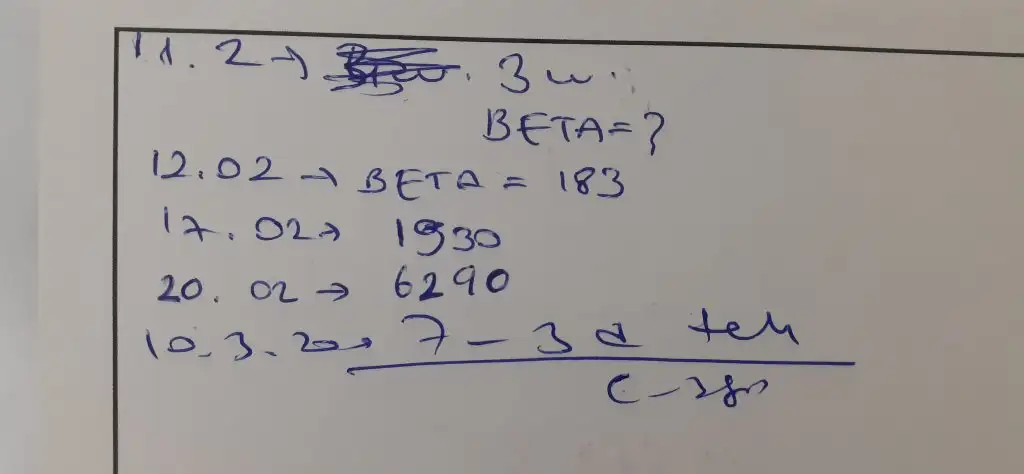 11.2 → 3 w.
BETA = ?
12.02 → BETA = 183
17.02 → 1930
20.02 → 6290
10.3.20 → 7 - 3 d